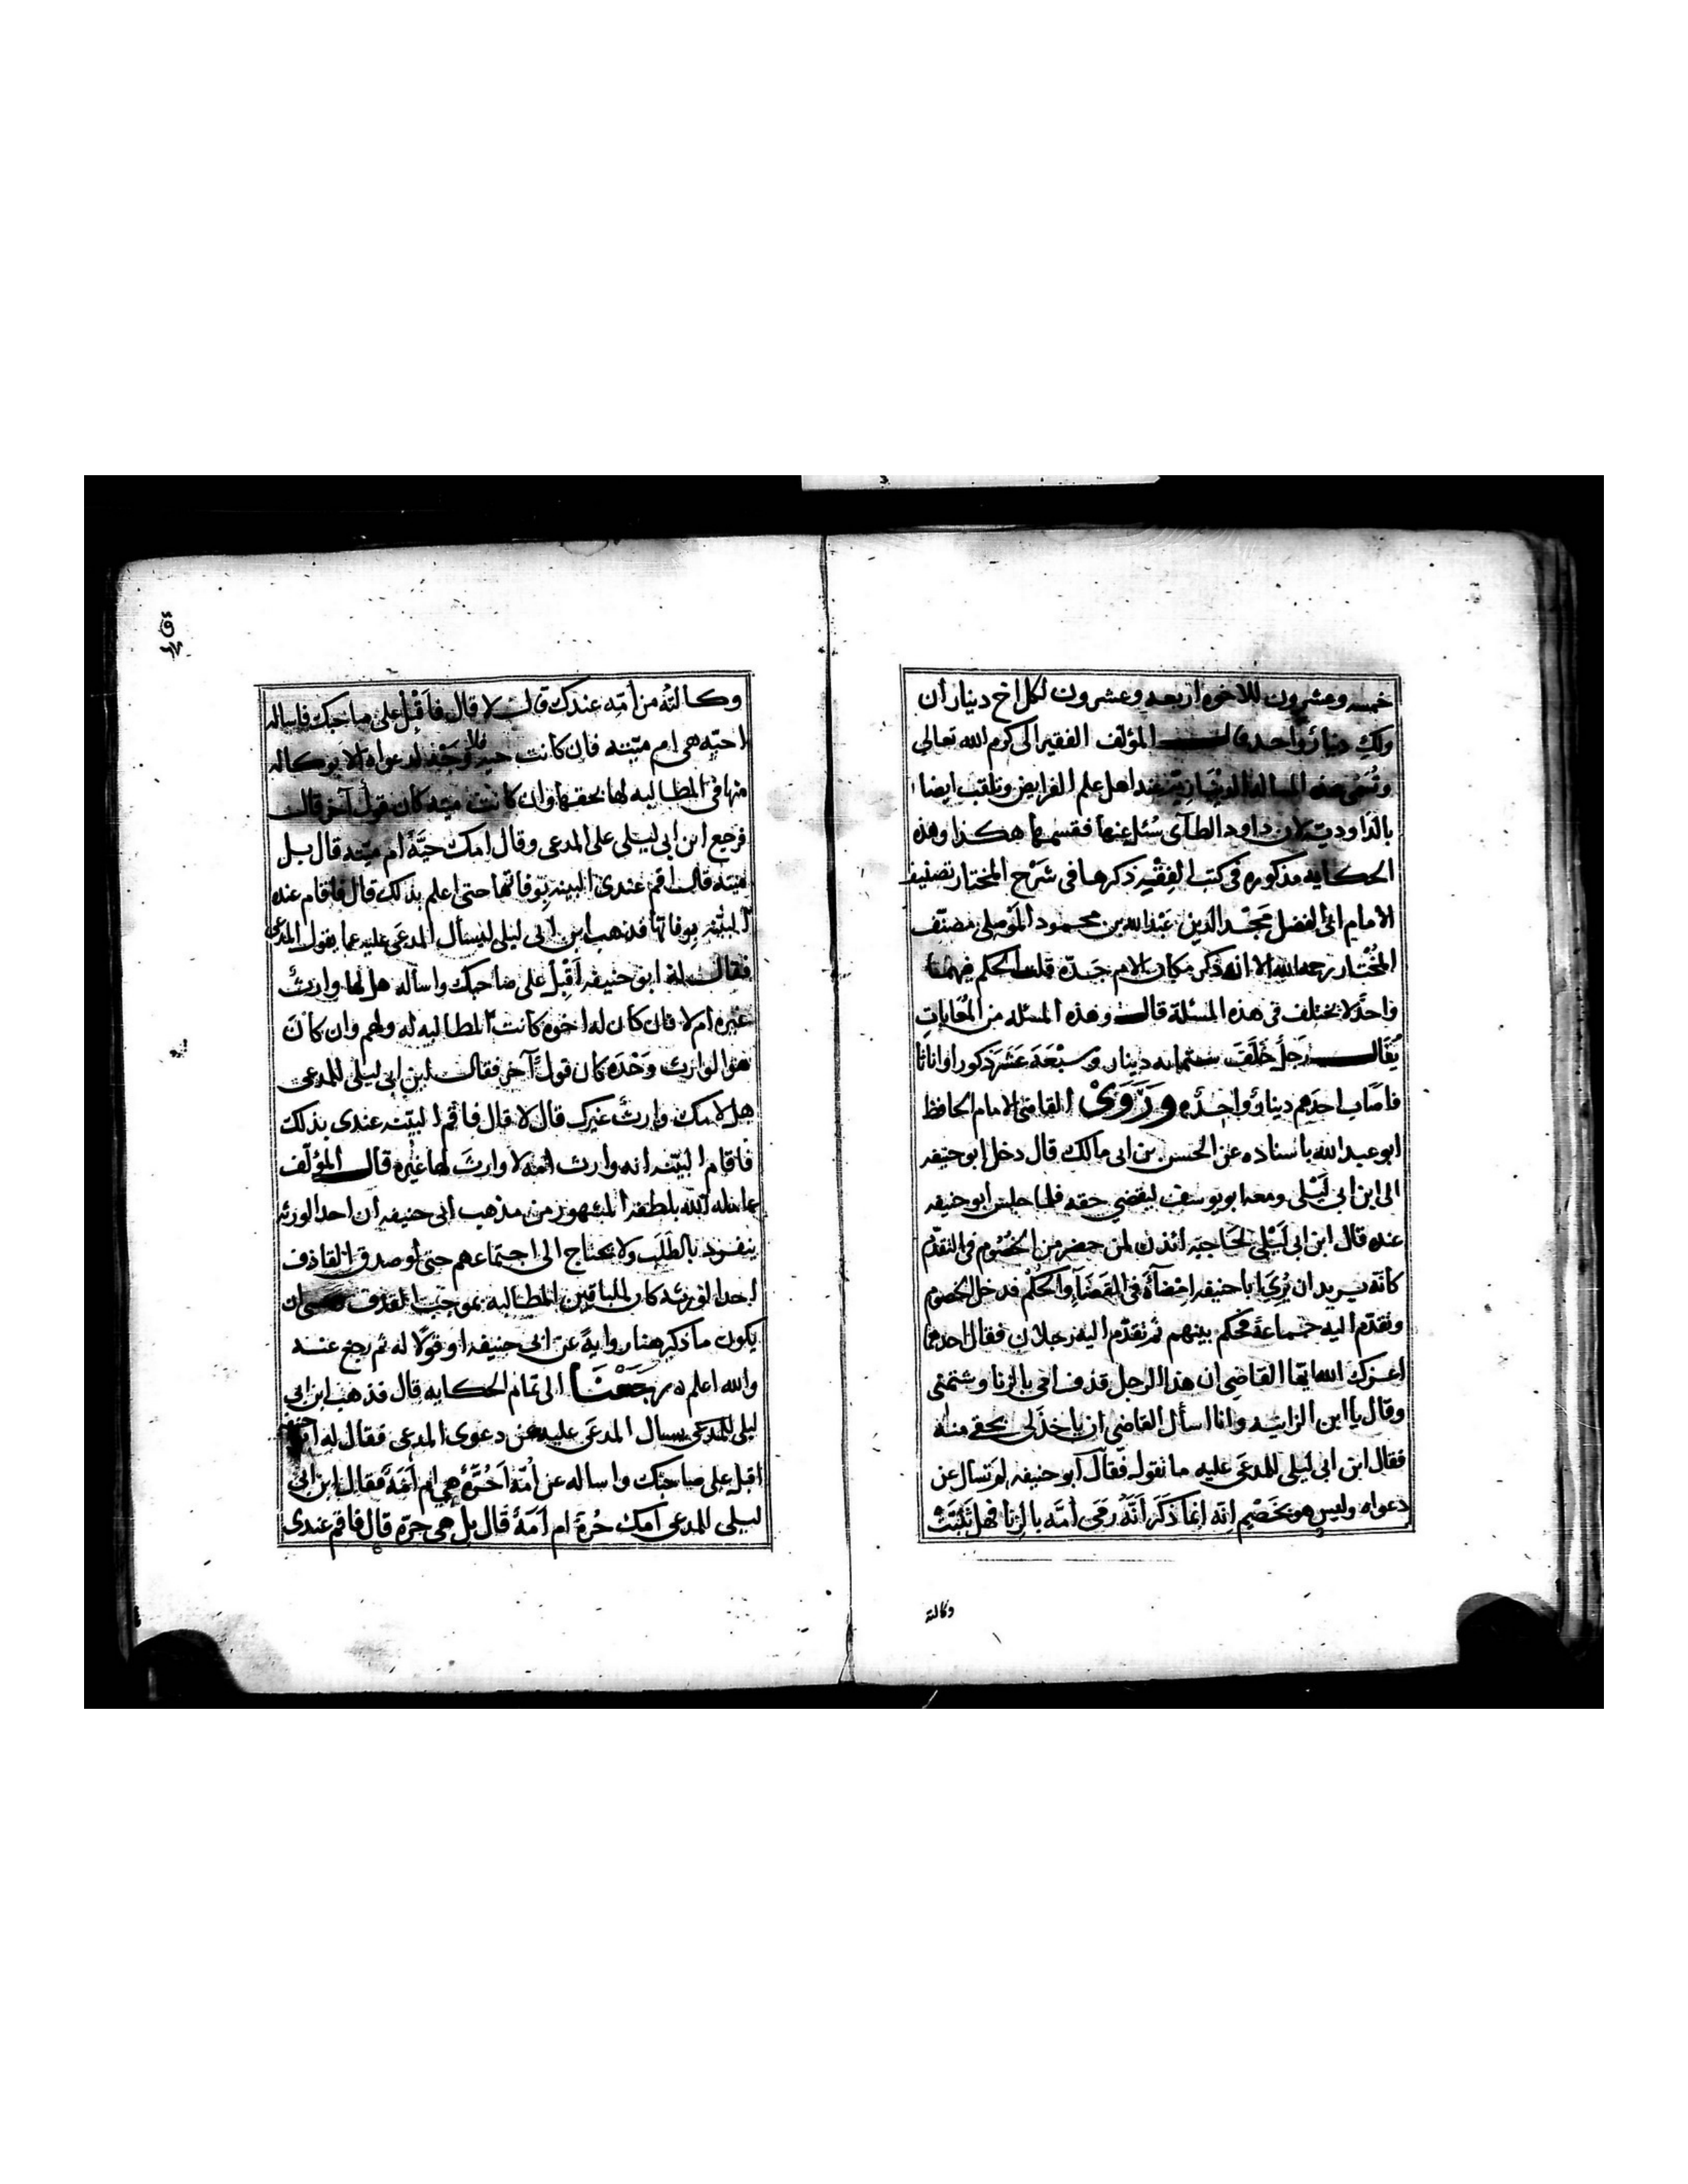 خمسه وعشرون للاخوه اربعه وعشرون لكل اخ ديناران
ولكِ دينارٌ واحد قال المؤلف الفقير الى كرم الله تعالى
وتُسَمى هذه المساله الدينَارِيّة عند اهل علم الفرايض وتلقب ايضا
بالدَاوديّة لان داود الطآى سُئل عنها فقسمها هكذا وهذه
الحكايه مذكوره فى كتب الفِقْه ذكرها فى شَرْح المختار تصنيف
الامام ابى الفضل مَجْد الدين عَبْد الله بن محمود المَوْصلى مصنّف
المُخْتار رحمه الله الا انه ذكر مكان الام جَدّه قلت الحكم فيهما
واحدٌ لا يختلف فى هذه المسئلة قال وهذه المسئله من المُعَاياتِ
يُقَال رَجلٌ خَلّفَ ستمايه دينار وسَبْعَةَ عَشَر ذكورا واناثا
فاصَاب احدَهم دينارٌ واحدٌ ه وَرَوَىْ القاضى الامام الحافظ
ابو عبد الله باسناده عن الحسن بن ابى مالك قال دخل ابو حنيفه
الى ابن ابى لَيْلى ومعه ابو يوسف ليقضي حقه فلما جلس ابو حنيفه
عنده قال ابن ابى لَيْلى لحَاجبه ائذن لمن حضر من الخُصُوم فى التقدّم
كانّه يريد ان يُرِيَ ابا حنيفه امْضآءَهُ فى القَضَآءِ والحُكْمْ فدخل الخصوم
وتقدّم اليه جماعة فحكم بينهم ثم تقدّم اليه رجلان فقال احدهما
اعزك الله ايها القاضي ان هذا الرجل قذف امى بالزنا وشتمنى
وقال يا ابن الزانيه وانا اسأل القاضى ان ياخذ لى بحقى منه
فقال ابن ابى ليلى للمدعَى عليه ما تقول فقال ابو حنيفه لم تسال عن
دعواه وليس هو بخَصْمٍ انه انما ذَكَرَ انّهُ رمَى اُمَّه بالزنا فهل ثَبَتَتْ
وكالتة
وكالتُهُ من اُمّه عندك قال لا قال فاَقْبِل على صاحبك فاساله
احيّه هى ام ميّته فان كانت حيه فلا وَجْه لدعواه الا بوكاله
منها فى المطالبه لها بحقها وان كانت ميّته كان قولٌ آخر قال
فرجع ابن ابى ليلى على المدعى وقال امك حيّةٌ ام ميّته قال بل
ميّته قال اقم عندى البينه بوفاتها حتى اعلم بذلك قال فاقام عنده
البيّنه بوفاتها فذهب ابن ابى ليلى ليسأل المدعَى عليه عما يقول المدعى
فقال له ابو حنيفه اَقْبِل على صَاحبك واسأله هل لها وارثٌ
غيره ام لا فان كان له اخوه كانت المطالبه له ولهم وان كانَ
هوَ الوارث وَحْدَه كان قولٌ آخر فقال ابن ابى ليلى للمدعى
هل لامك وارثٌ غيرك قال لا قال فاقم البيّنه عندى بذلك
فاقام البيّنه انه وارث امه لا وارثَ لها غيره قال المؤلّف
عامله الله بلطفه المشهور من مذهب ابى حنيفه ان احد الورثه
ينفرد بالطَلَب ولا يحتاج الى اجتماعهم حتى لو صدق القاذف
احد الورثه كان للباقين المطالبه بموجب القذف فعسى ان
يكون ما ذكر هنا روايةً عن ابى حنيفه او قولًا له ثم رجع عنه
والله اعلم ه رَجَعْنَا الى تمام الحكايه قال فذهب ابن ابى
ليلى للمدعى يسال المدعَى عليه عن دعوى المدعى فقال له ابو حنيفه
اقبل على صاحبك واساله عن اُمّه اَحُرَّةٌ هى ام اَمَةٌ فقال ابن ابى
ليلى للمدعى اُمك حُرة ام اَمَةٌ قال بل هى حرّه قال فاقم عندى